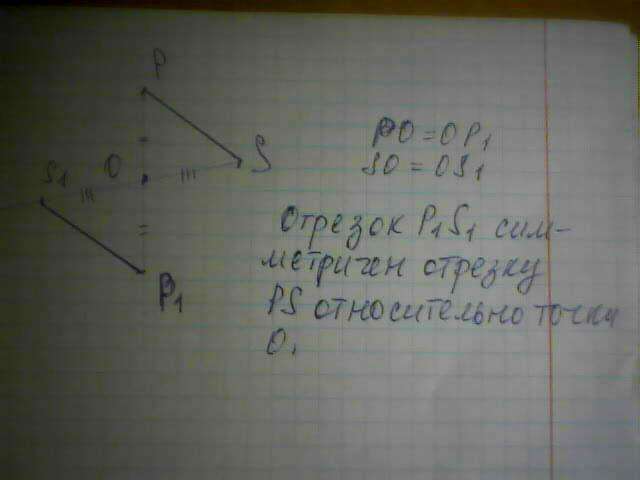 P
O
S
S1
P1
PO = OP1
SO = OS1
Отрезок P1S1 сим-
метричен отрезку
PS относительно точки
O.